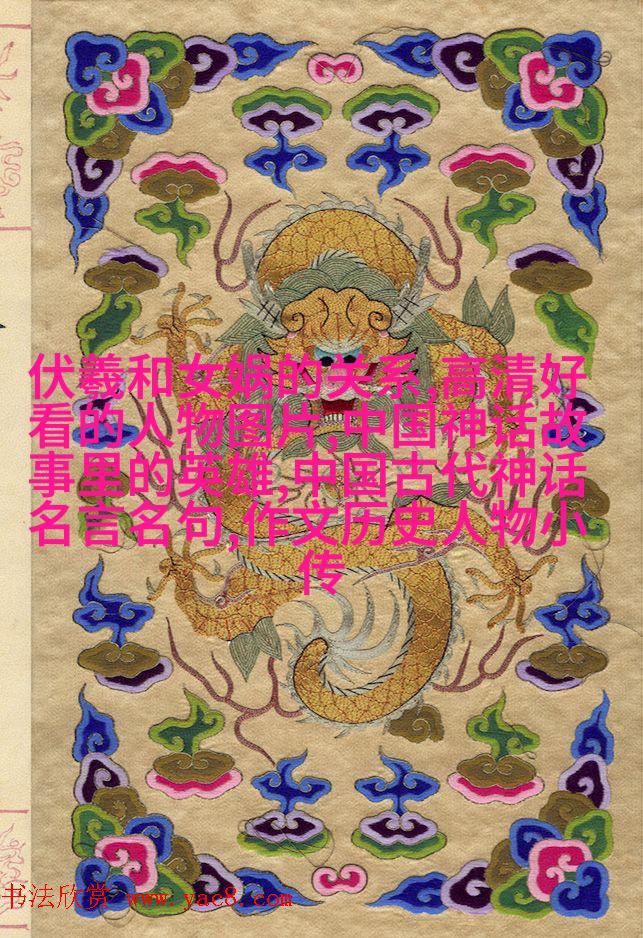 伏羲和女娲的关系,高清好
看的人物图片,中国神话故
事里的英雄,中国古代神话
名言名句,作文历史人物小
传
书法欣赏 www.yac8.com